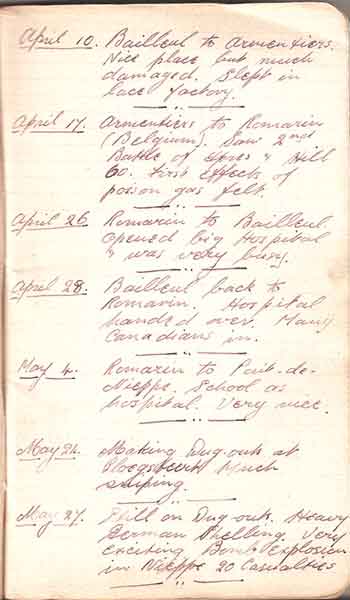 April 10. Bailleul to Armentiers.
Nice place but much
damaged. Slept in
lace factory.
April 17. Armentiers to Romarin
(Belgium). Saw 2nd
Battle of Ypres & Hill
60. First effects of
poison gas felt.
April 26. Romarin to Bailleul.
Opened big Hospital
& was very busy.
April 28. Bailleul back to
Romarin. Hospital
handed over. Many
Canadians in.
May 4. Romarin to Pont-de-
Nieppe. School as
hospital. Very nice.
May 24. Making Dug-outs at
Ploegsteert Much
sniping.
May 27. Still on Dug-outs. Heavy
German Shelling. Very
exciting Bomb Explosion
in Nieppe 20 Casualties